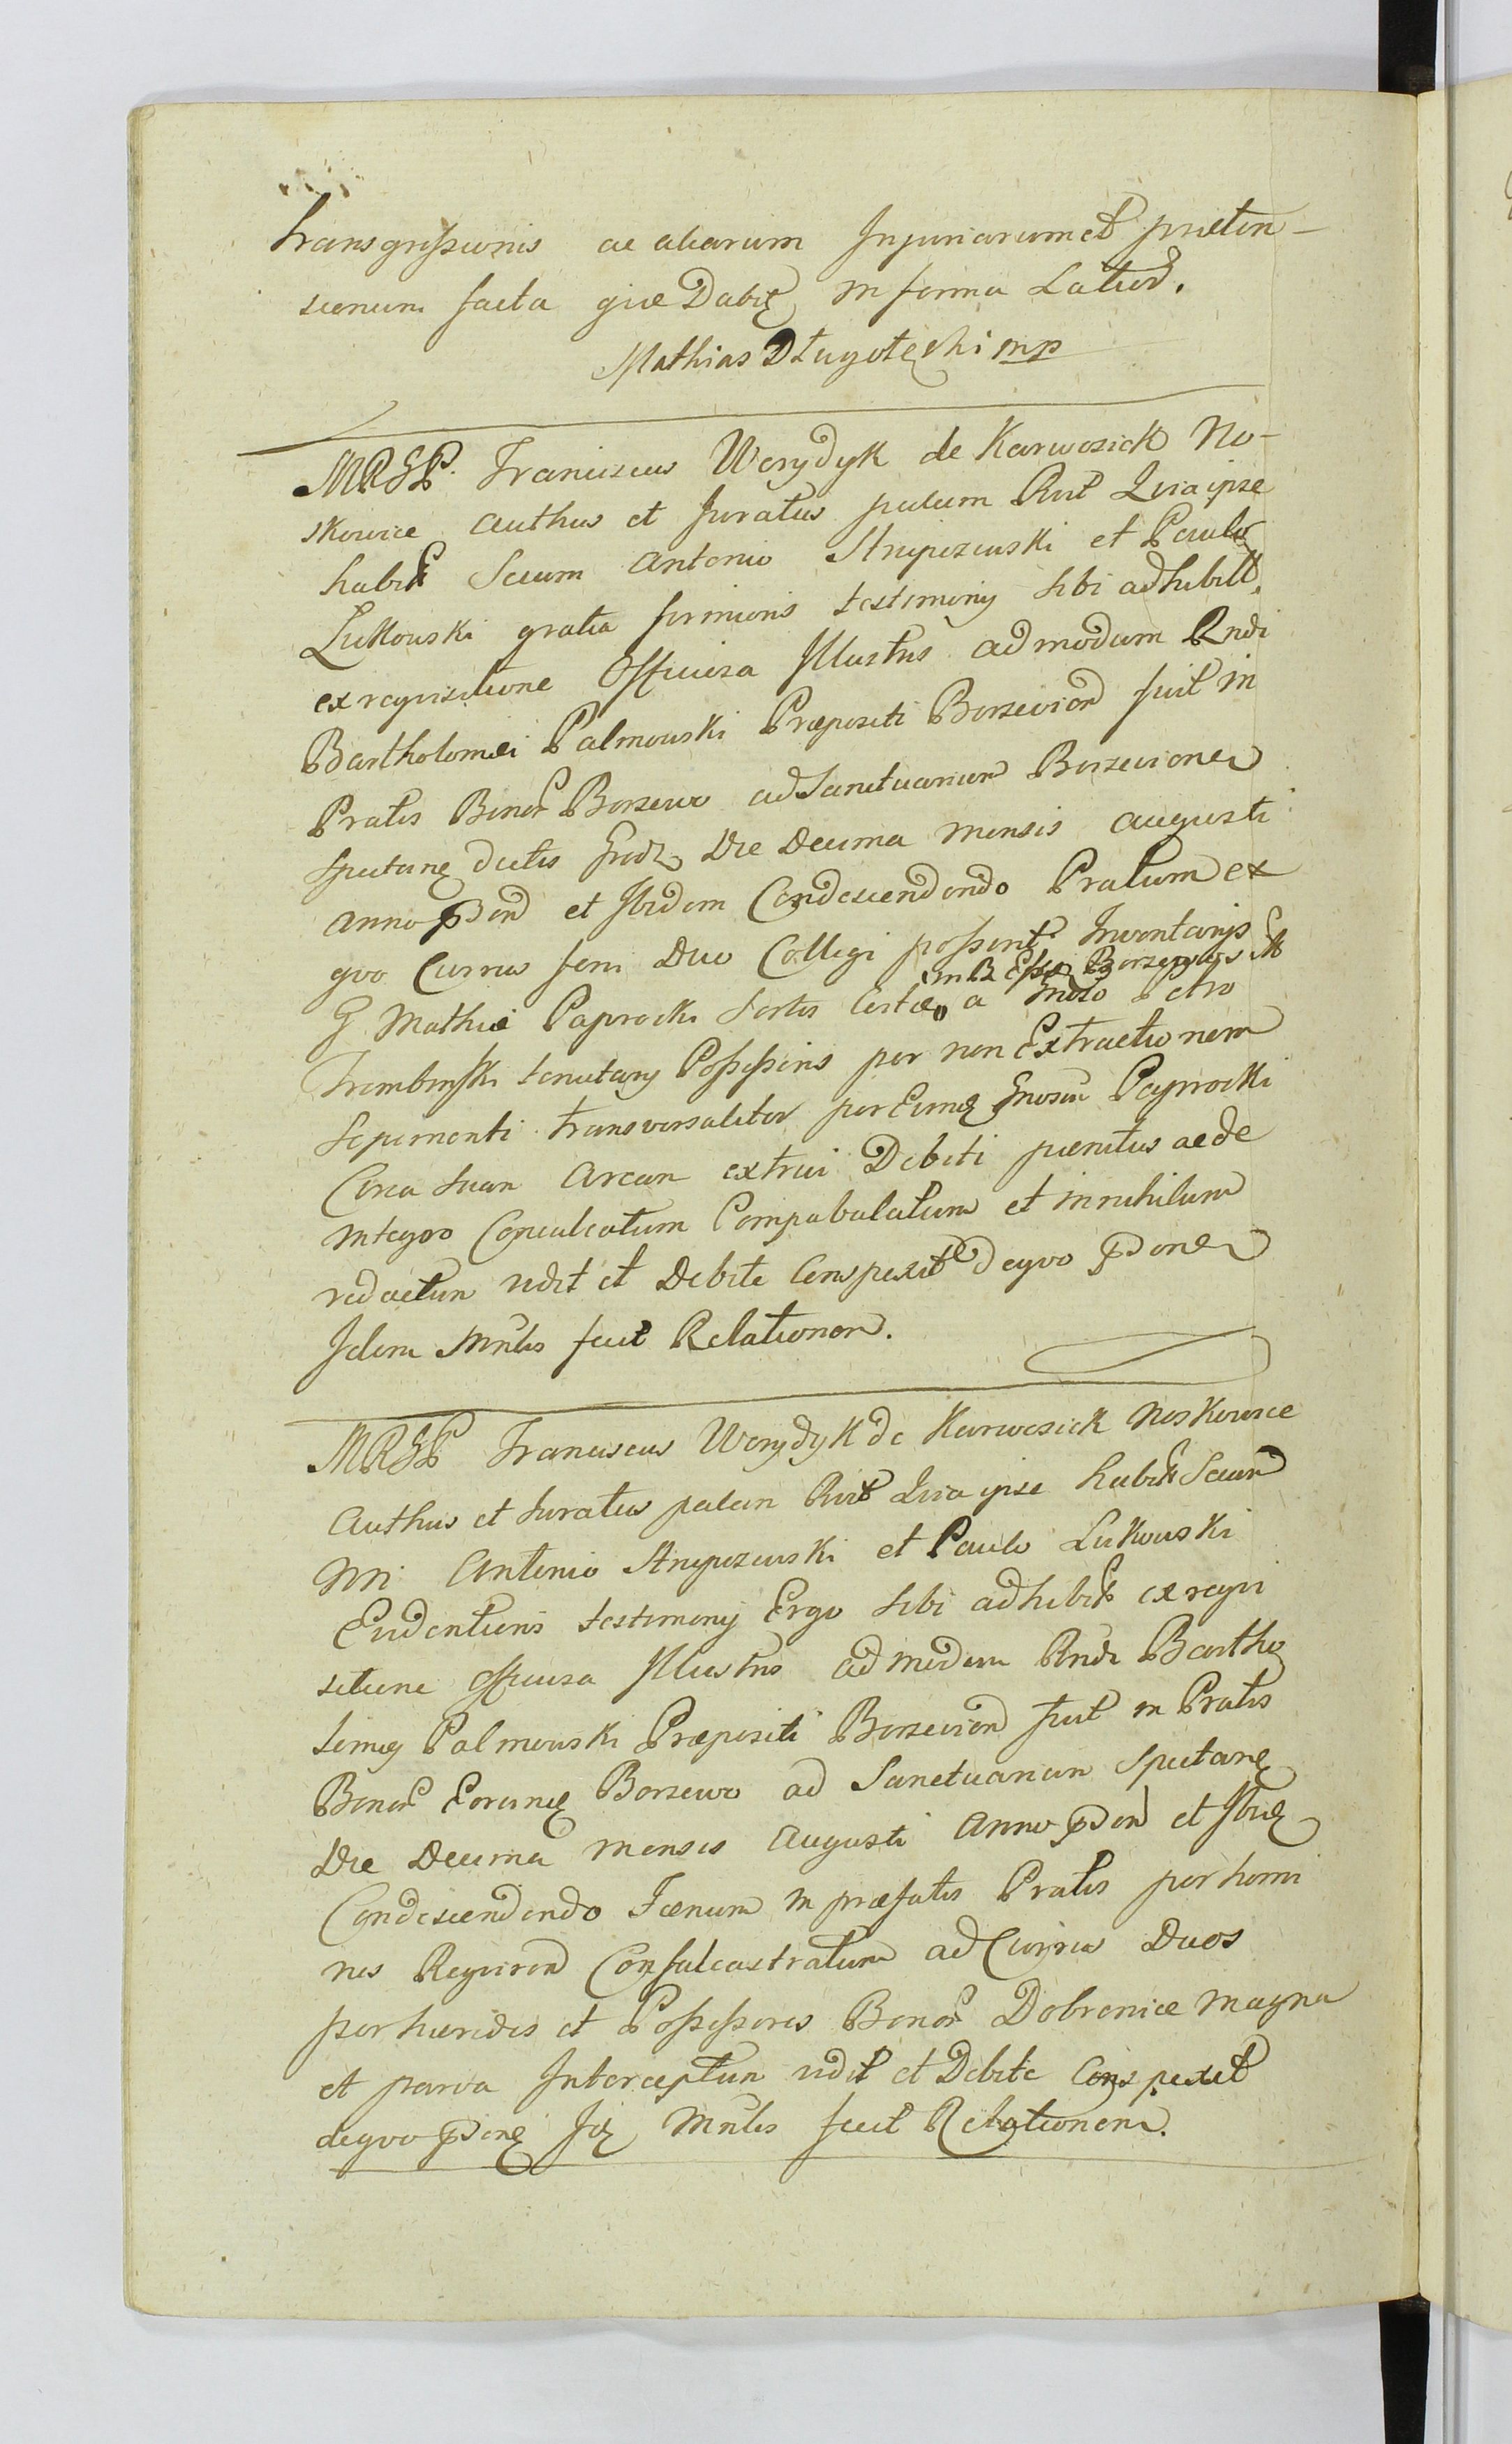 transgressionis ac aliarum Injuriarum et præten-
sionum facta qræ Dabitę in forma Latiori.
Mathias Długołęcki mp
MRGP. Franciscus Werydyk de Karwosiek No-
skowice authus et Juratus palam Rvit Quia ipse
habitt Secum Antonio Strupczewski et Paulo
Lukowski gratia firmioris testimony sibi adhibitt.
ex requisitione Officiosa Illustris admodum Rndi
Bartholomæi Palmowski Præpositi Borzevien fuit in
Pratis Bonor Borzewo ad Sanctuarium Borzevionen
spectanę dictis Die Decima mensis augusti
anno pden et Ibidem Condescendendo Pratum ex
quo Currus feni Duo Colligi possent Inventarys
in B Ecclæ
G. Mathiæ Paprocki Sortis Certæ a
Trembinski tenutary Possessoris per non Extractionem
Sepimenti transversaliter per Eumę Gnosum Paprocki
Circa suam Aream extrui Debiti pænitus ac de
integro Conculcatum Compabulatum et in nihilum
redactum vidit et Debite Conspexit de quo pdone
Idem Mnlis fecit Relationem.
MRGP Franciscus Werydyk de Karwosiek Noskowice
Authus et Juratus palam Rvit Quia ipse habitt Secum
Nri Antonio Strupczewski et Paulo Lukowski
Evidentioris testimony Ergo sibi adhibitt ex requi
sitione officiosa Illustris admodum Rndi Bartho
lomęi Palmowski Præpositi Borzevien fuit in Pratis
Bonor Eorumę Borzewo ad Sanctuarium spectanę
Die Decima mensis Augusti Anno pden et Ibię
Condescendendo Fænum in præfatis Pratis per homi
nes Requiren Confalcastratum ad Currus Duos
per hæredes et Possessores Bonor Dobronice magna
et parva Interceptum vidit et Debite Conspexit
de quo pdonę Idę Mnlis fecit Relationem.